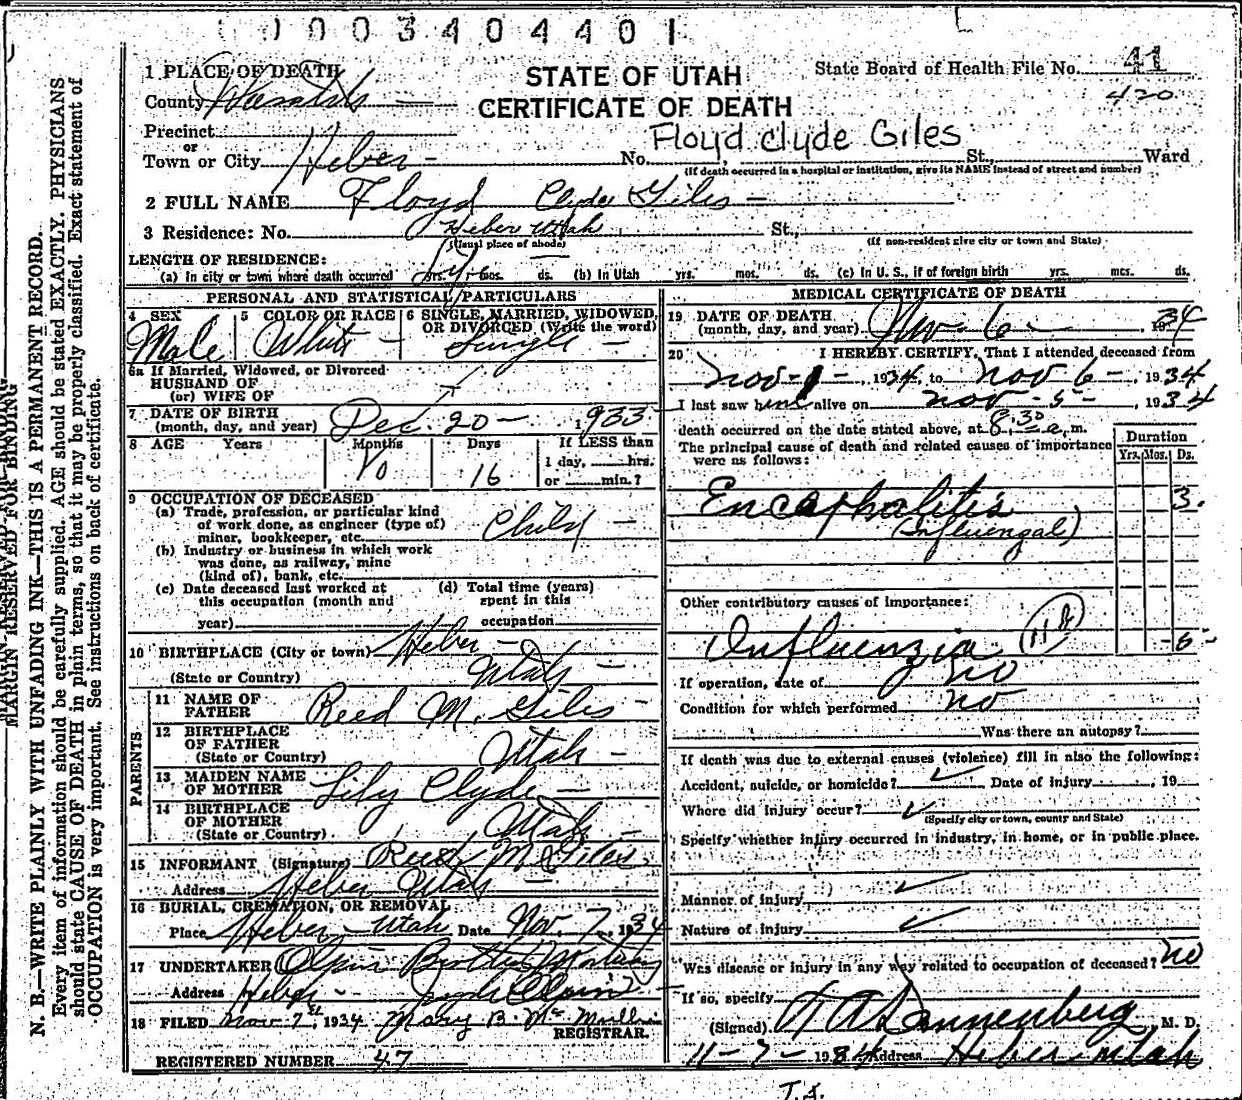 0003404401
1 PLACE OF DEATH
STATE OF UTAH
CERTIFICATE OF DEATH
State Board of Health File No. 41
420
County Wasatch
Precinct
or
Town or City Heber
Floyd Clyde Giles
No. St., Ward
(If death occurred in a hospital or institution, give its NAME instead of street and number)
2 FULL NAME Floyd Clyde Giles
3 Residence: No. Heber Utah St.,
(Usual place of abode) (If non-resident give city or town and State)
LENGTH OF RESIDENCE:
(a) In city or town where death occurred yrs. mos. ds. (b) In Utah yrs. mos. ds. (c) In U. S., if of foreign birth yrs. mos. ds.
PERSONAL AND STATISTICAL PARTICULARS
4 SEX 5 COLOR OR RACE 6 SINGLE, MARRIED, WIDOWED, OR DIVORCED (Write the word)
Male White Single
6a If Married, Widowed, or Divorced
HUSBAND OF
(or) WIFE OF
7 DATE OF BIRTH
(month, day, and year) Dec. 20 - 1933
8 AGE Years Months Days If LESS than
1 day, hrs.
or min.?
10 16
9 OCCUPATION OF DECEASED
(a) Trade, profession, or particular kind
of work done, as engineer (type of)
miner, bookkeeper, etc. Child
(b) Industry or business in which work
was done, as railway, mine
(kind of), bank, etc.
(c) Date deceased last worked at
this occupation (month and
year)
(d) Total time (years)
spent in this
occupation
10 BIRTHPLACE (City or town) Heber
(State or Country) Utah
PARENTS
11 NAME OF
FATHER Reed M. Giles
12 BIRTHPLACE
OF FATHER
(State or Country) Utah
13 MAIDEN NAME
OF MOTHER Lily Clyde
14 BIRTHPLACE
OF MOTHER
(State or Country) Utah
15 INFORMANT (Signature) Reed M. Giles
Address Heber Utah
16 BURIAL, CREMATION, OR REMOVAL
Place Heber Utah Date Nov. 7, 1934
17 UNDERTAKER Olpin Brothers Mortuary
Address Heber
18 FILED Nov 7, 1934 Mary B. Mc
REGISTRAR.
REGISTERED NUMBER 47
MEDICAL CERTIFICATE OF DEATH
19 DATE OF DEATH
(month, day, and year) Nov - 6 - 1934
20 I HEREBY CERTIFY, That I attended deceased from
Nov - 1 -, 1934, to Nov 6 -, 1934
I last saw him alive on Nov - 5 -, 1934
death occurred on the date stated above, at 8:30 a. m.
The principal cause of death and related causes of importance
were as follows:
Duration
Yrs. Mos. Ds.
Encephalitis 3
(Influenzal)
Other contributory causes of importance:
Influenzia 6
If operation, date of no
Condition for which performed no
Was there an autopsy?
If death was due to external causes (violence) fill in also the following:
Accident, suicide, or homicide? Date of injury , 19
Where did injury occur?
(Specify city or town, county and State)
Specify whether injury occurred in industry, in home, or in public place.
Manner of injury
Nature of injury
Was disease or injury in any way related to occupation of deceased? no
If so, specify
(Signed) Dannenberg M. D.
11 - 7 - 1934 Address Heber Utah
MARGIN RESERVED FOR BINDING
N. B.—WRITE PLAINLY WITH UNFADING INK—THIS IS A PERMANENT RECORD.
Every item of information should be carefully supplied. AGE should be stated EXACTLY. PHYSICIANS
should state CAUSE OF DEATH in plain terms, so that it may be properly classified. Exact statement of
OCCUPATION is very important. See instructions on back of certificate.